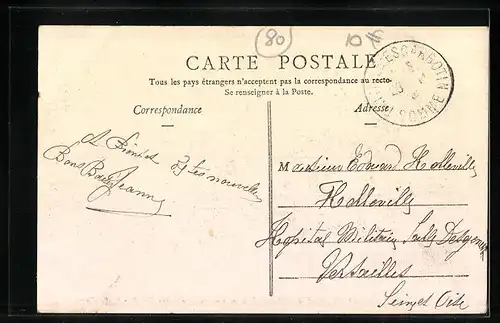 80
CARTE POSTALE
Tous les pays étrangers n'acceptent pas la correspondance au recto
Se renseigner à la Poste.
Correspondance
Adresse
ESCARBOTIN
SOMME
A Bientôt
Bons Baisers
Jeanne
M onsieur Edouard Holleville
Holleville
Hopital Militaire Salle Desgenettes
Versailles
Seine et Oise